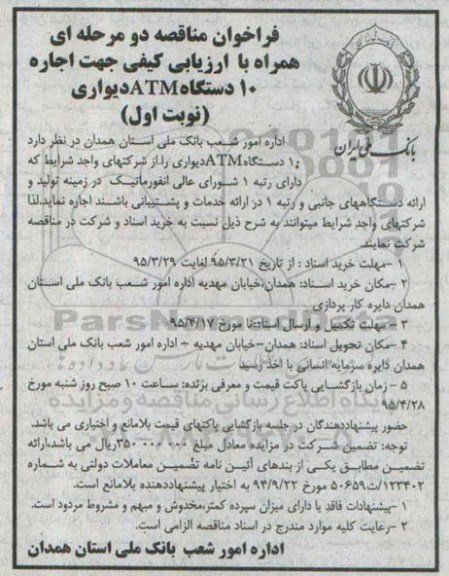 فراخوان مناقصه دو مرحله ای
همراه با ارزیابی کیفی جهت اجاره
۱۰ دستگاه ATM دیواری
(نوبت اول)
بانک ملی ایران
اداره امور شعب بانک ملی استان همدان در نظر دارد
۱۰ دستگاه ATM دیواری را از شرکتهای واجد شرایط که
دارای رتبه ۱ شورای عالی انفورماتیک در زمینه تولید و
ارائه دستگاههای جانبی و رتبه ۱ در ارائه خدمات و پشتیبانی باشند اجاره نماید.لذا
شرکتهای واجد شرایط میتوانند به شرح ذیل نسبت به خرید اسناد و شرکت در مناقصه
شرکت نمایند.
۱ -مهلت خرید اسناد : از تاریخ ۹۵/۳/۲۱ لغایت ۹۵/۳/۲۹
۲ -مکان خرید اسناد: همدان،خیابان مهدیه اداره امور شعب بانک ملی استان
همدان دایره کار پردازی
۳ -مهلت تکمیل و ارسال اسناد:تا مورخ ۹۵/۴/۱۷
۴ -مکان تحویل اسناد: همدان-خیابان مهدیه - اداره امور شعب بانک ملی استان
همدان دایره سرمایه انسانی با اخذ رسید
۵ - زمان بازگشایی پاکت قیمت و معرفی برنده: ساعت ۱۰ صبح روز شنبه مورخ
۹۵/۴/۲۸
حضور پیشنهاددهندگان در جلسه بازگشایی پاکتهای قیمت بلامانع و اختیاری می باشد.
توجه: تضمین شرکت در مزایده معادل مبلغ ۳۵۰/۰۰۰/۰۰۰ریال می باشد،ارائه
تضمین مطابق یکی از بندهای آئین نامه تضمین معاملات دولتی به شماره
۱۲۳۴۰۲/ت۵۰۶۵۹ مورخ ۹۴/۹/۲۲ به اختیار پیشنهاددهنده بلامانع است.
۱-پیشنهادات فاقد یا دارای میزان سپرده کمتر،مخدوش و مبهم و مشروط مردود است.
۲ -رعایت کلیه موارد مندرج در اسناد مناقصه الزامی است.
اداره امور شعب بانک ملی استان همدان